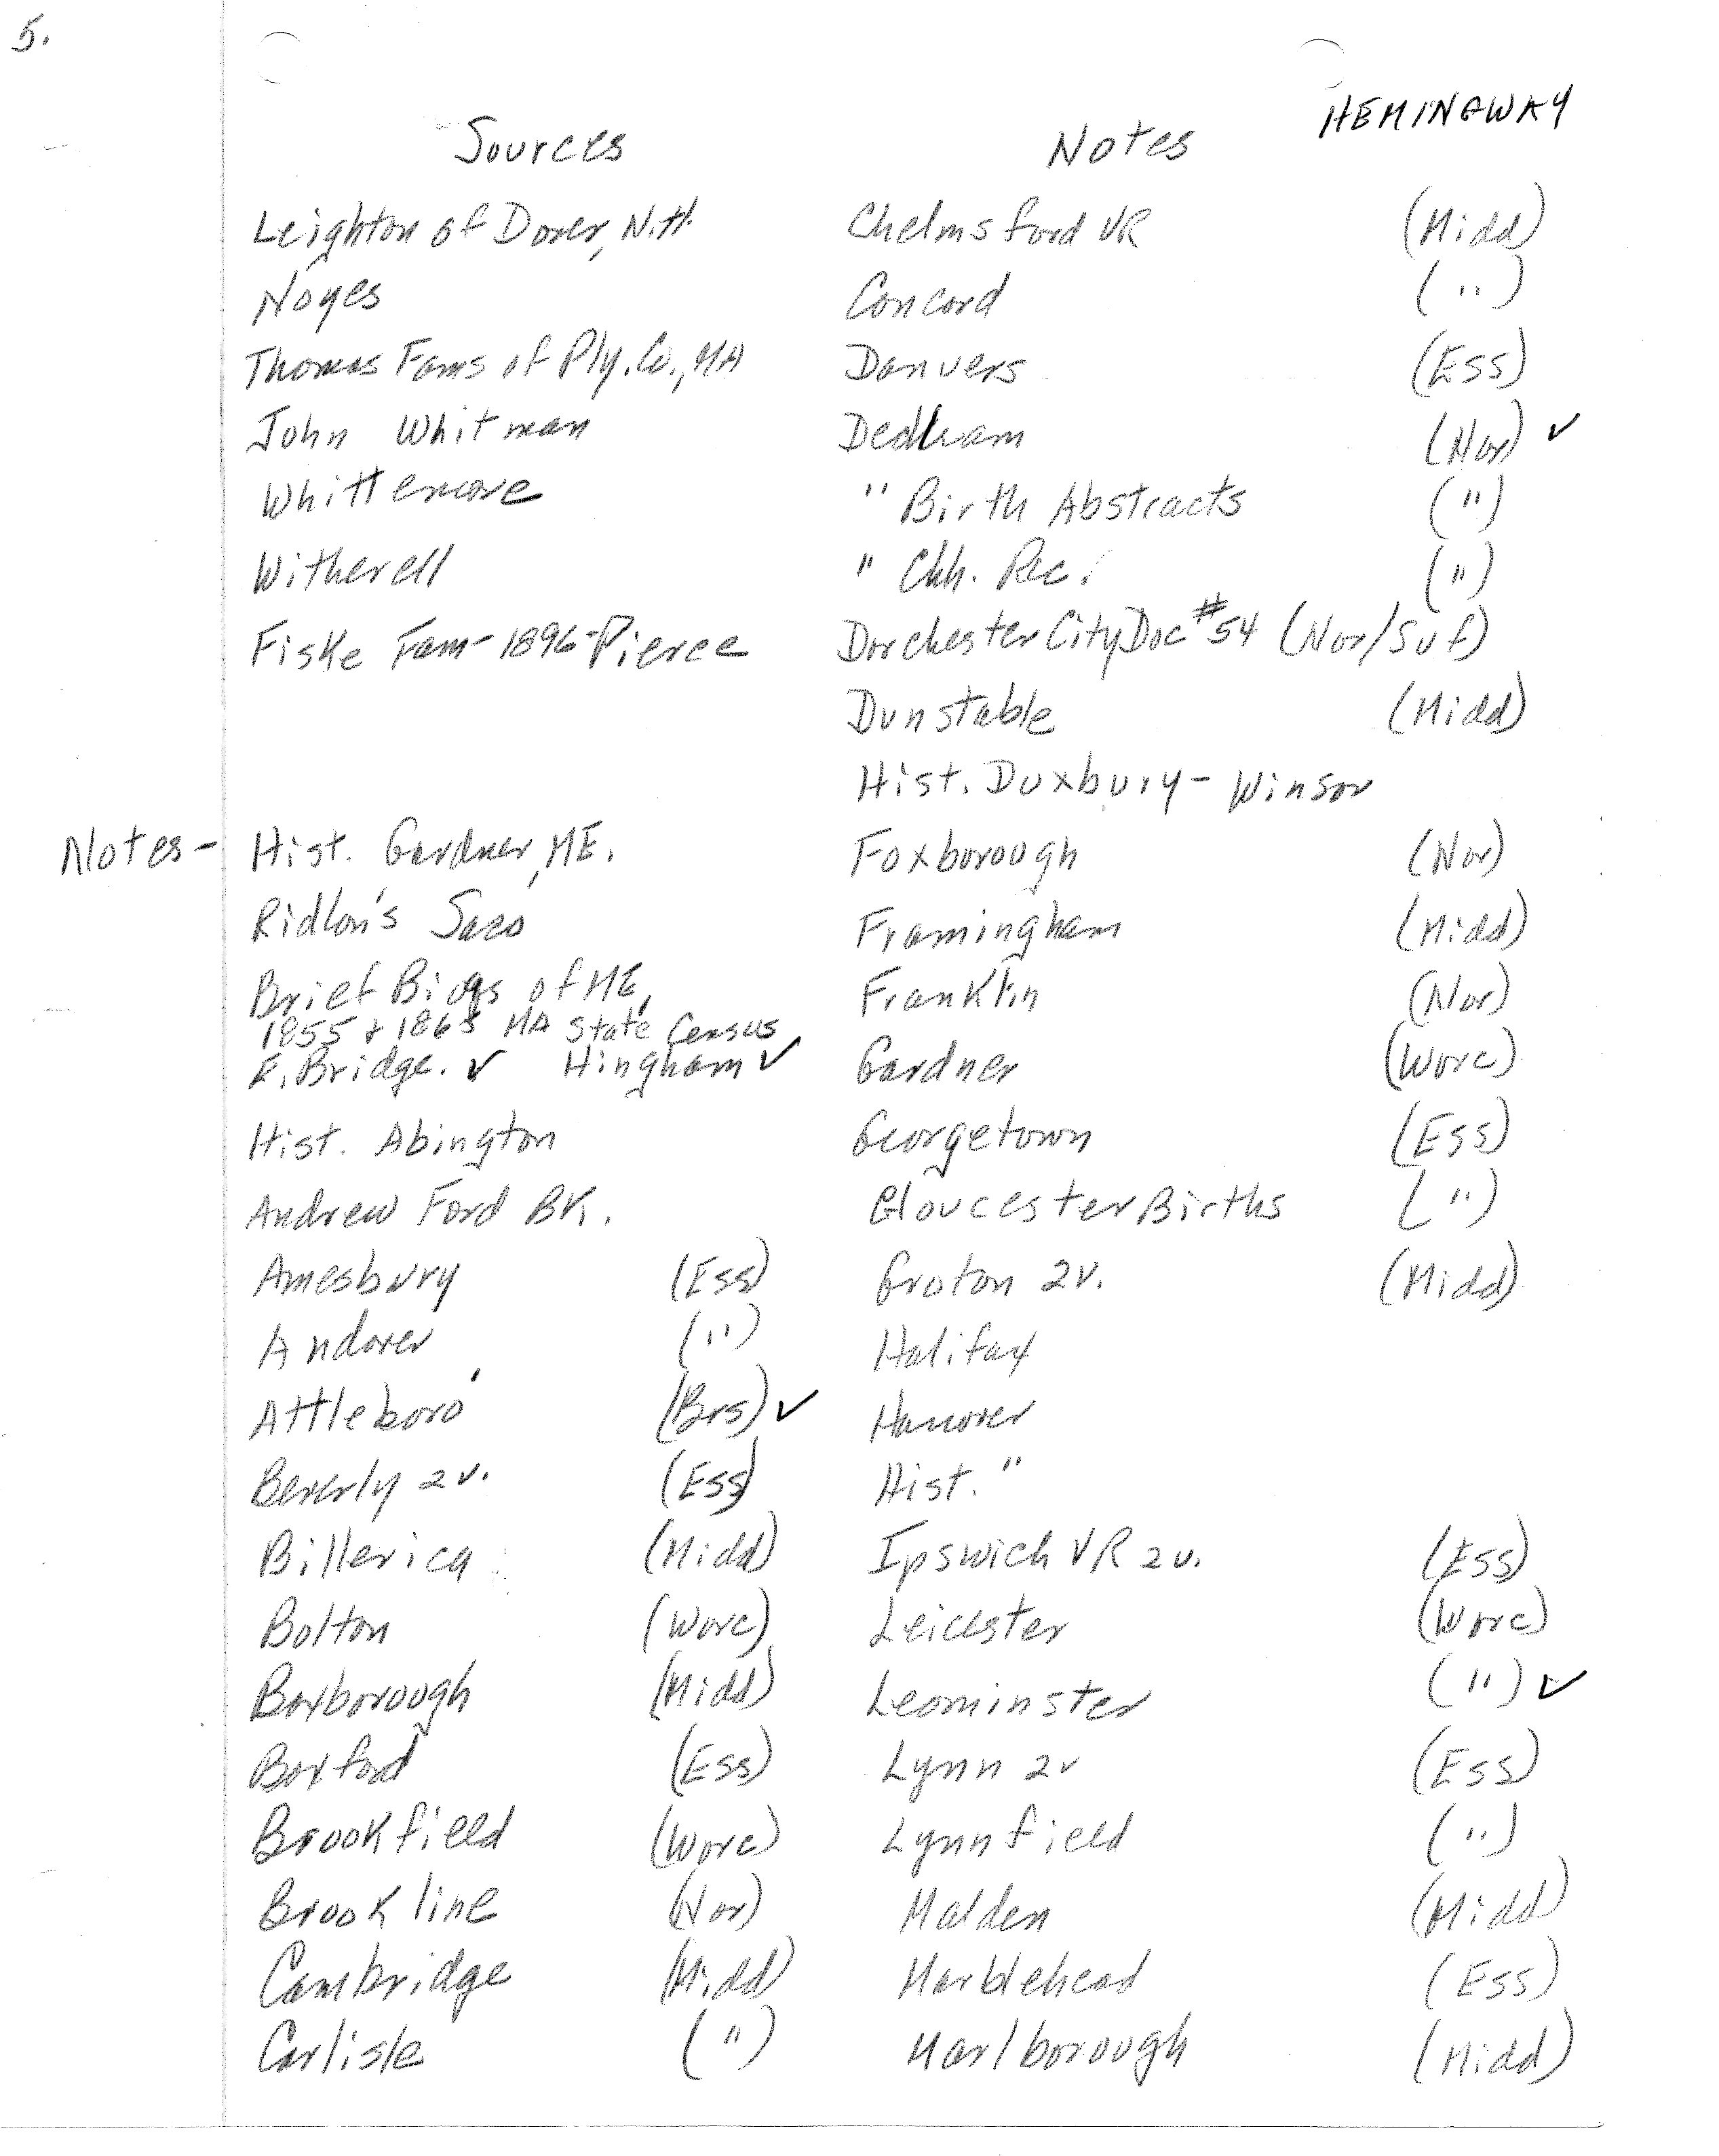 5.
HEMINGWAY
Sources
Leighton of Dover, N.H.
Noyes
Thomas Fams of Ply. Co., MA
John Whitman
Whittemore
Witherell
Fiske Fam - 1896 - Pierce
Notes - Hist. Gardner, ME.
Ridlon's Saco
Brief Biogs of ME,
1855 + 1865 MA State Census
E. Bridge. ✓ Hingham ✓
Hist. Abington
Andrew Ford BK.
Amesbury (Ess)
Andover (")
Attleboro' (Brs) ✓
Beverly 2v. (Ess)
Billerica (Midd)
Bolton (Worc)
Boxborough (Midd)
Boxford (Ess)
Brookfield (Worc)
Brookline (Nor)
Cambridge (Midd)
Carlisle (")
Notes
Chelmsford VR (Midd)
Concord (")
Danvers (Ess)
Dedham (Nor) ✓
" Birth Abstracts (")
" Chh. Rec. (")
Dorchester City Doc #54 (Nor/Suf)
Dunstable (Midd)
Hist. Duxbury - Winsor
Foxborough (Nor)
Framingham (Midd)
Franklin (Nor)
Gardner (Worc)
Georgetown (Ess)
Gloucester Births (")
Groton 2v. (Midd)
Halifax
Hanover
Hist. "
Ipswich VR 2v. (Ess)
Leicester (Worc)
Leominster (") ✓
Lynn 2v (Ess)
Lynnfield (")
Malden (Midd)
Marblehead (Ess)
Marlborough (Midd)